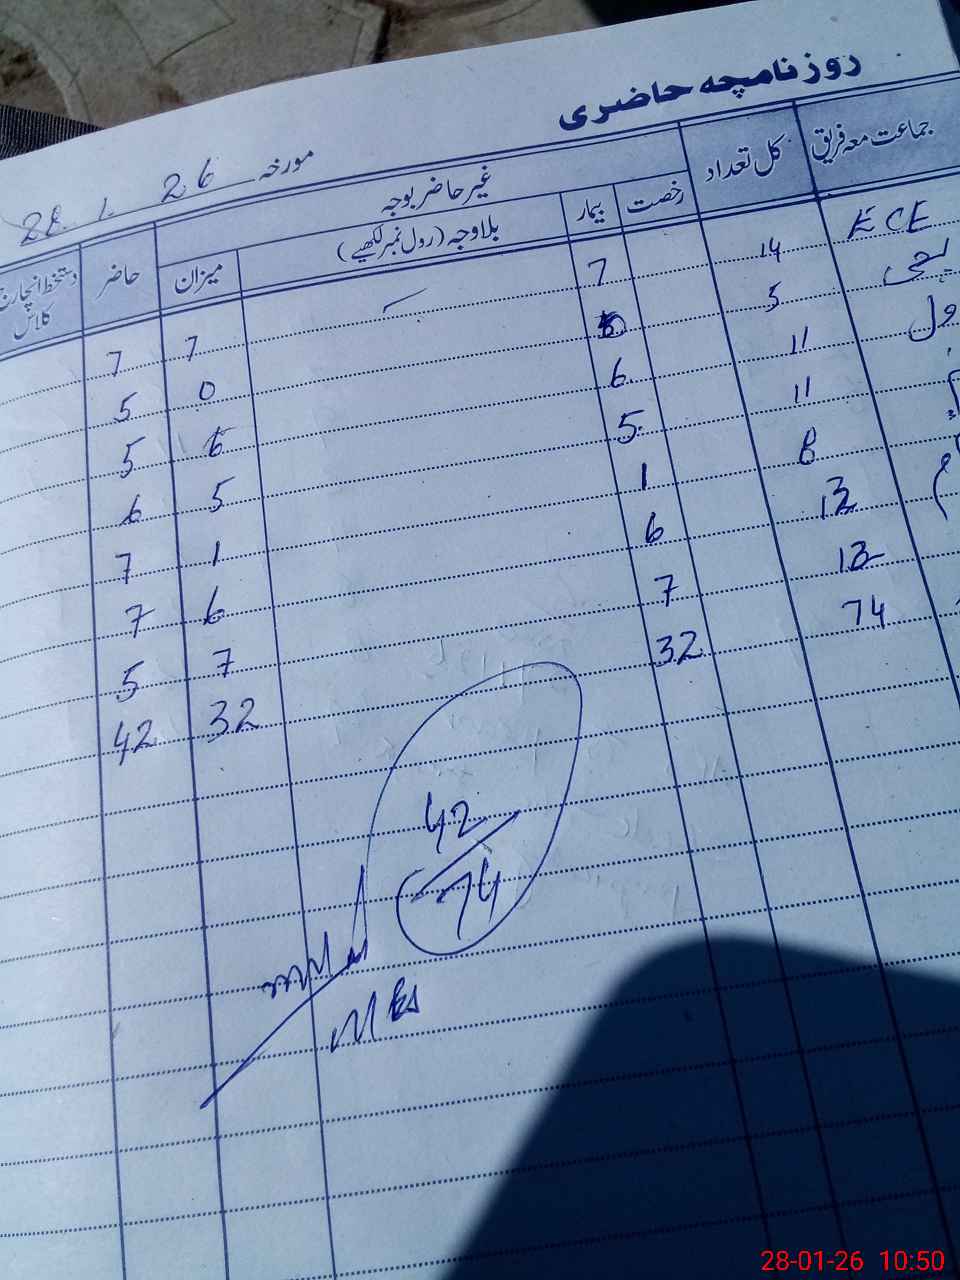 روزنامچہ حاضری
مورخہ 28.1.26
جماعت معہ فریق کل تعداد غیر حاضر بوجہ حاضر دستخط انچارج کلاس
رخصت بیمار بلاوجہ (رول نمبر لکھیے) میزان
ECE 14 7 7 7
5 0 5
ول 11 6 6 5
11 5 5 6
8 1 1 7
13 6 6 7
12 7 7 5
74 32 32 42
42
74
28-01-26 10:50